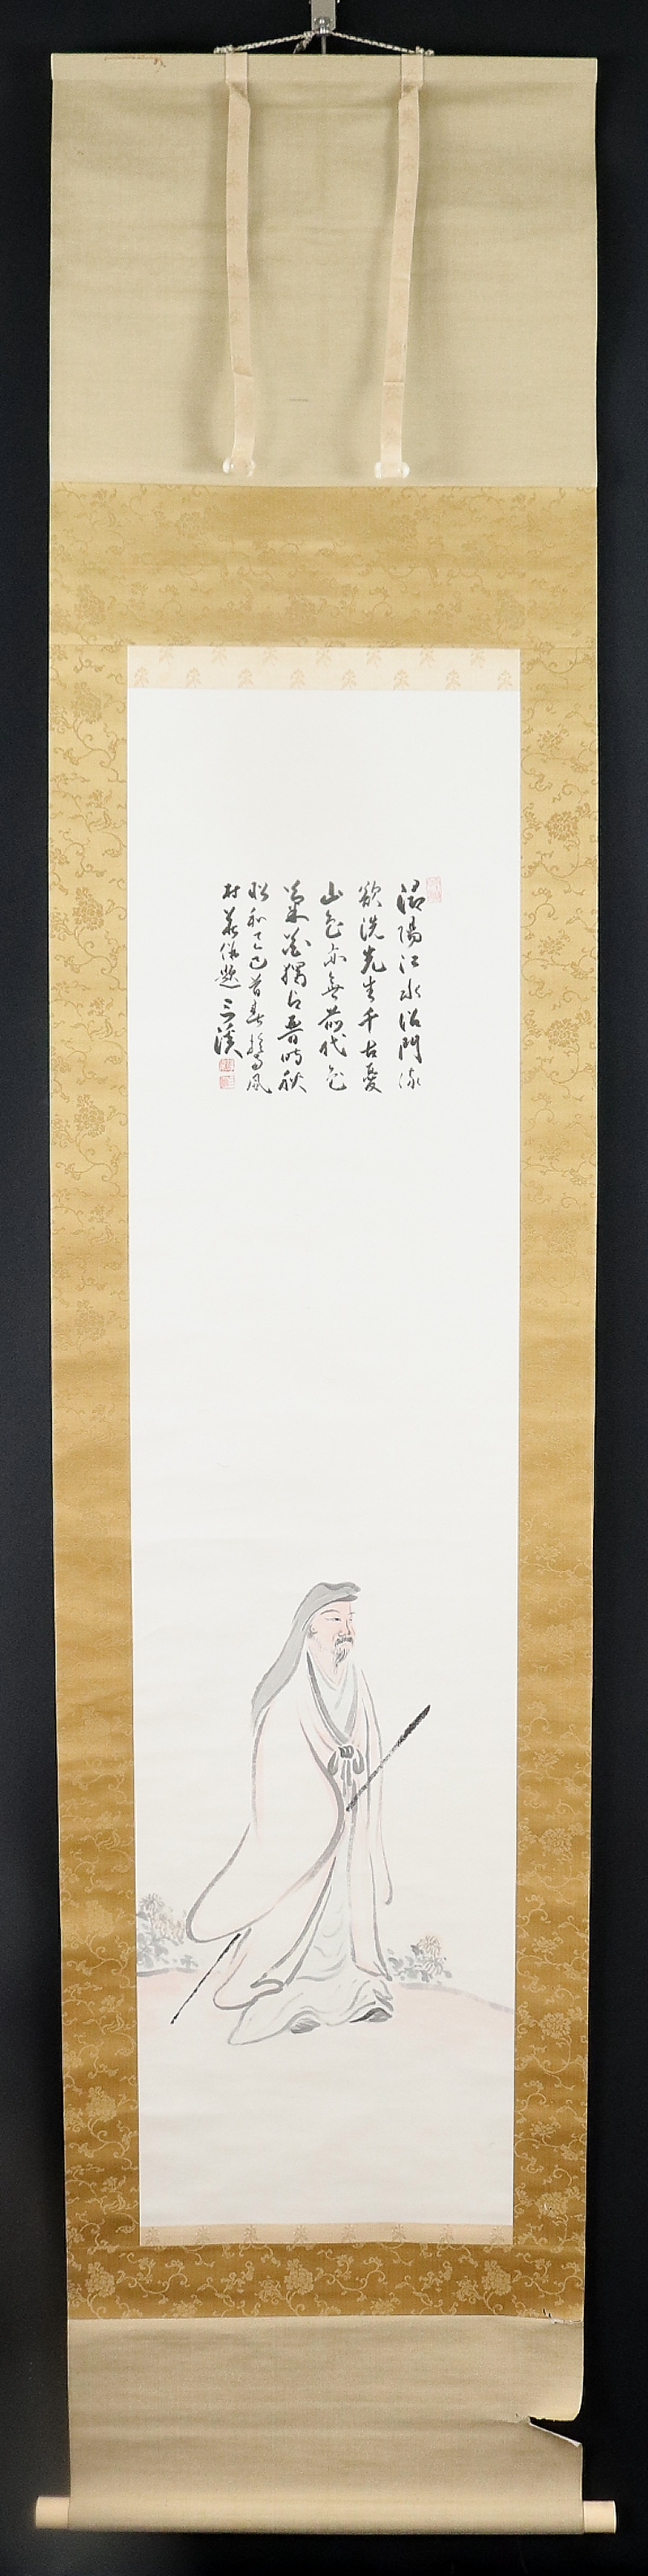 潯陽江水沿門流
欲洗先生千古憂
山色亦無前代色
菊花猶占晋時秋
昭和己巳首春於南風
村荘併題 三溪